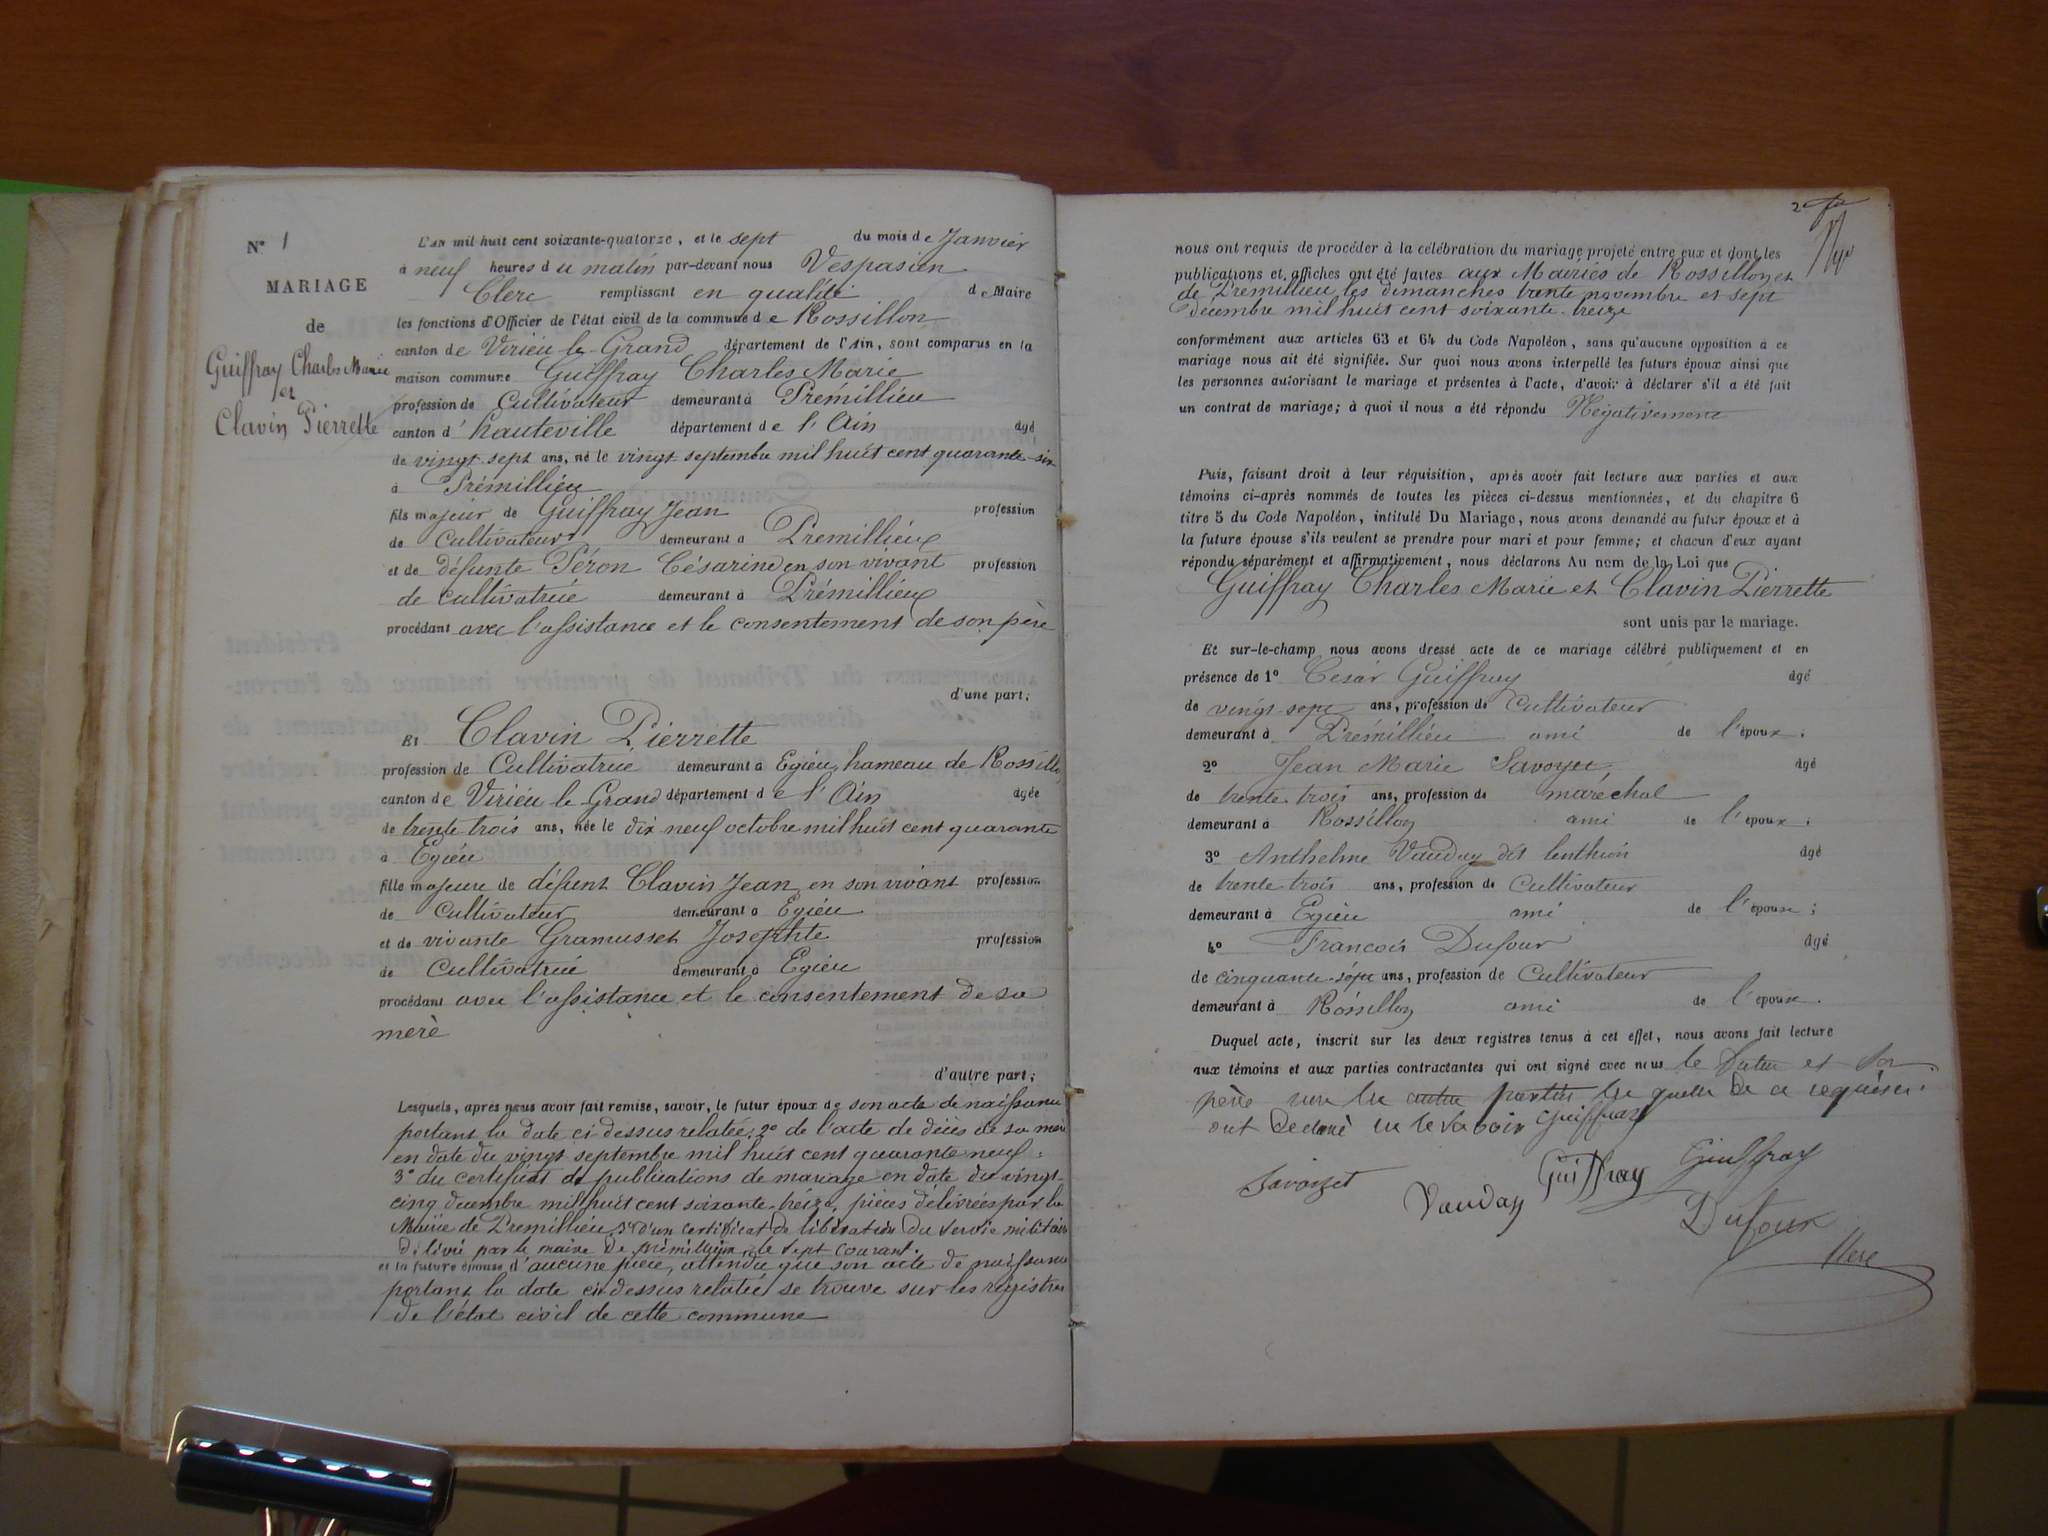 N° 1
MARIAGE
de
Guiffray Charles Marie
et
Clavin Pierrette
L'AN mil huit cent soixante-quatorze, et le sept du mois de Janvier
à neuf heures du matin par-devant nous Vespasien
Clerc remplissant en qualité de Maire
les fonctions d'Officier de l'état civil de la commune de Rossillon
canton de Virieu le Grand département de l'Ain, sont comparus en la
maison commune Guiffray Charles Marie
profession de Cultivateur demeurant à Prémillieu
canton d'hauteville département de l'Ain âgé
de vingt sept ans, né le vingt septembre mil huit cent quarante-six
à Prémillieu
fils majeur de Guiffray Jean profession
de Cultivateur demeurant à Premillieu
et de défunte Péron Césarine en son vivant profession
de cultivatrice demeurant à Prémillieu
procédant avec l'assistance et le consentement de son père
d'une part;
Et Clavin Pierrette
profession de Cultivatrice demeurant à Egieu hameau de Rossillon
canton de Virieu le Grand département de l'Ain âgée
de trente trois ans, née le dix neuf octobre mil huit cent quarante
à Egieu
fille majeure de défunt Clavin Jean en son vivant profession
de Cultivateur demeurant à Egieu
et de vivante Gramusset Josephte profession
de Cultivatrice demeurant à Egieu
procédant avec l'assistance et le consentement de sa
mère
d'autre part;
Lesquels, après nous avoir fait remise, savoir, le futur époux de son acte de naissance
portant la date ci dessus relatée; 2° de l'acte de décès de sa mère
en date du vingt septembre mil huit cent quarante neuf;
3° du certificat de publications de mariage en date du vingt-
cinq décembre mil huit cent soixante-treize, pièces délivrées par la
Mairie de Premillieu, d'un certificat de libération du service militaire
délivré par le maire de Prémillieu, le sept courant.
et la future épouse d'aucune pièce, attendu que son acte de naissance
portant la date ci dessus relatée se trouve sur les registres
de l'état civil de cette commune
2
nous ont requis de procéder à la célébration du mariage projeté entre eux et dont les
publications et affiches ont été faites aux Mairies de Rossillon et
de Premillieu les dimanches trente novembre et sept
décembre mil huit cent soixante-treize
conformément aux articles 63 et 64 du Code Napoléon, sans qu'aucune opposition à ce
mariage nous ait été signifiée. Sur quoi nous avons interpellé les futurs époux ainsi que
les personnes autorisant le mariage et présentes à l'acte, d'avoir à déclarer s'il a été fait
un contrat de mariage; à quoi il nous a été répondu Négativement
Puis, faisant droit à leur réquisition, après avoir fait lecture aux parties et aux
témoins ci-après nommés de toutes les pièces ci-dessus mentionnées, et du chapitre 6
titre 5 du Code Napoléon, intitulé Du Mariage, nous avons demandé au futur époux et à
la future épouse s'ils veulent se prendre pour mari et pour femme; et chacun d'eux ayant
répondu séparément et affirmativement, nous déclarons Au nom de la Loi que
Guiffray Charles Marie et Clavin Pierrette
sont unis par le mariage.
Et sur-le-champ nous avons dressé acte de ce mariage célébré publiquement et en
présence de 1° César Guiffray âgé
de vingt-sept ans, profession de Cultivateur
demeurant à Prémillieu ami de l'époux.
2° Jean Marie Savoyet, âgé
de trente trois ans, profession de maréchal
demeurant à Rossillon ami de l'époux;
3° Anthelme Vauday dit âgé
de trente trois ans, profession de Cultivateur
demeurant à Egieu ami de l'épouse;
4° Francois Dufour âgé
de cinquante-sept ans, profession de Cultivateur
demeurant à Rossillon ami de l'épouse.
Duquel acte, inscrit sur les deux registres tenus à cet effet, nous avons fait lecture
aux témoins et aux parties contractantes qui ont signé avec nous le futur et son
père non les autre parties les quelles de ce requises
ont declaré ne le savoir Guiffray
Savoyet Vauday Guiffray Guiffray
Dufour
Clerc